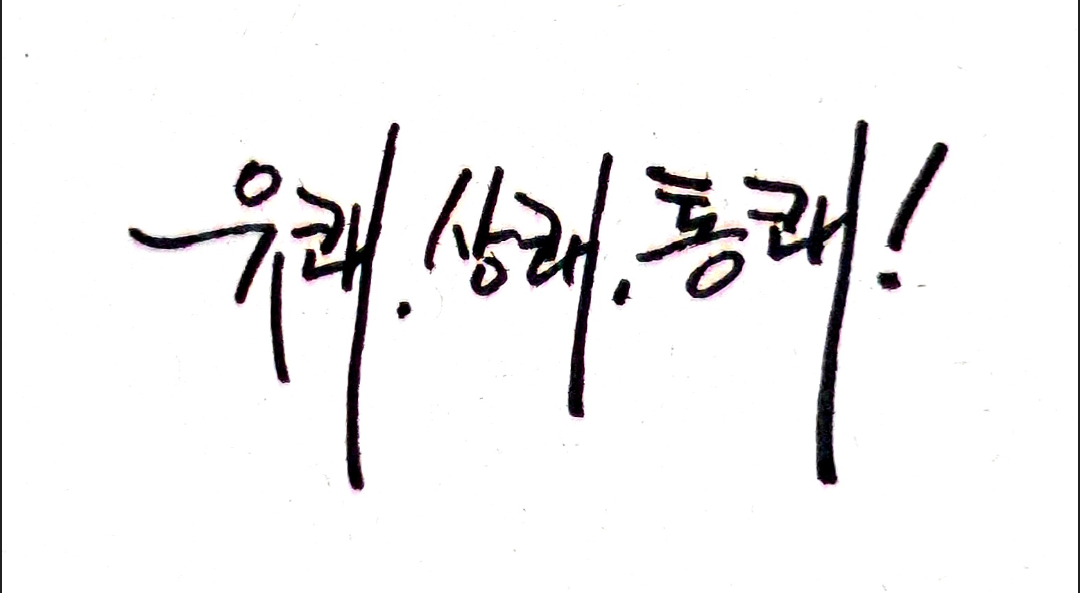 유쾌.상쾌.통쾌!